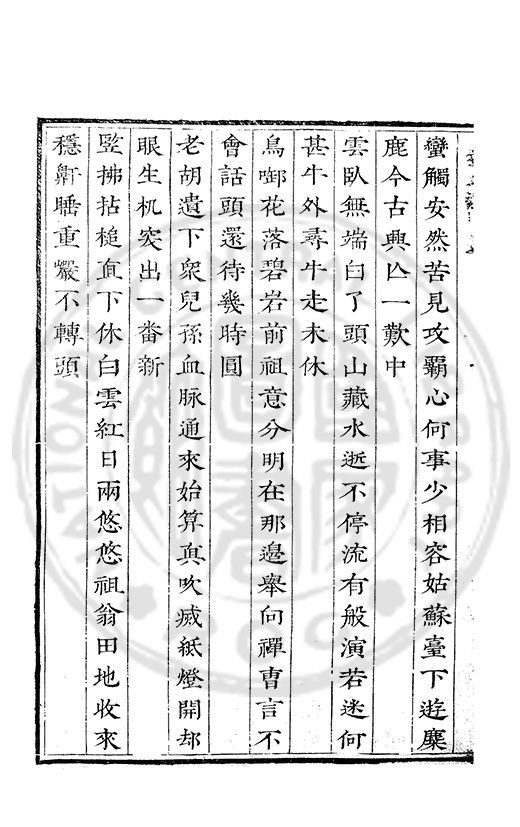 蠻觸安然苦見攻霸心何事少相容姑蘇臺下遊麋
鹿今古興亾一歎中
雲臥無端白了頭山藏水逝不停流有般演若迷何
甚牛外尋牛走未休
鳥啣花落碧岩前祖意分明在那邉舉向禪曺言不
會話頭還待幾時圓
老胡遺下衆兒孫血脉通來始算眞吹㓕紙燈開却
眼生机突出一畨新
竪拂拈槌直下休白雲紅日兩悠悠祖翁田地收來
穩鼾睡重巖不轉頭